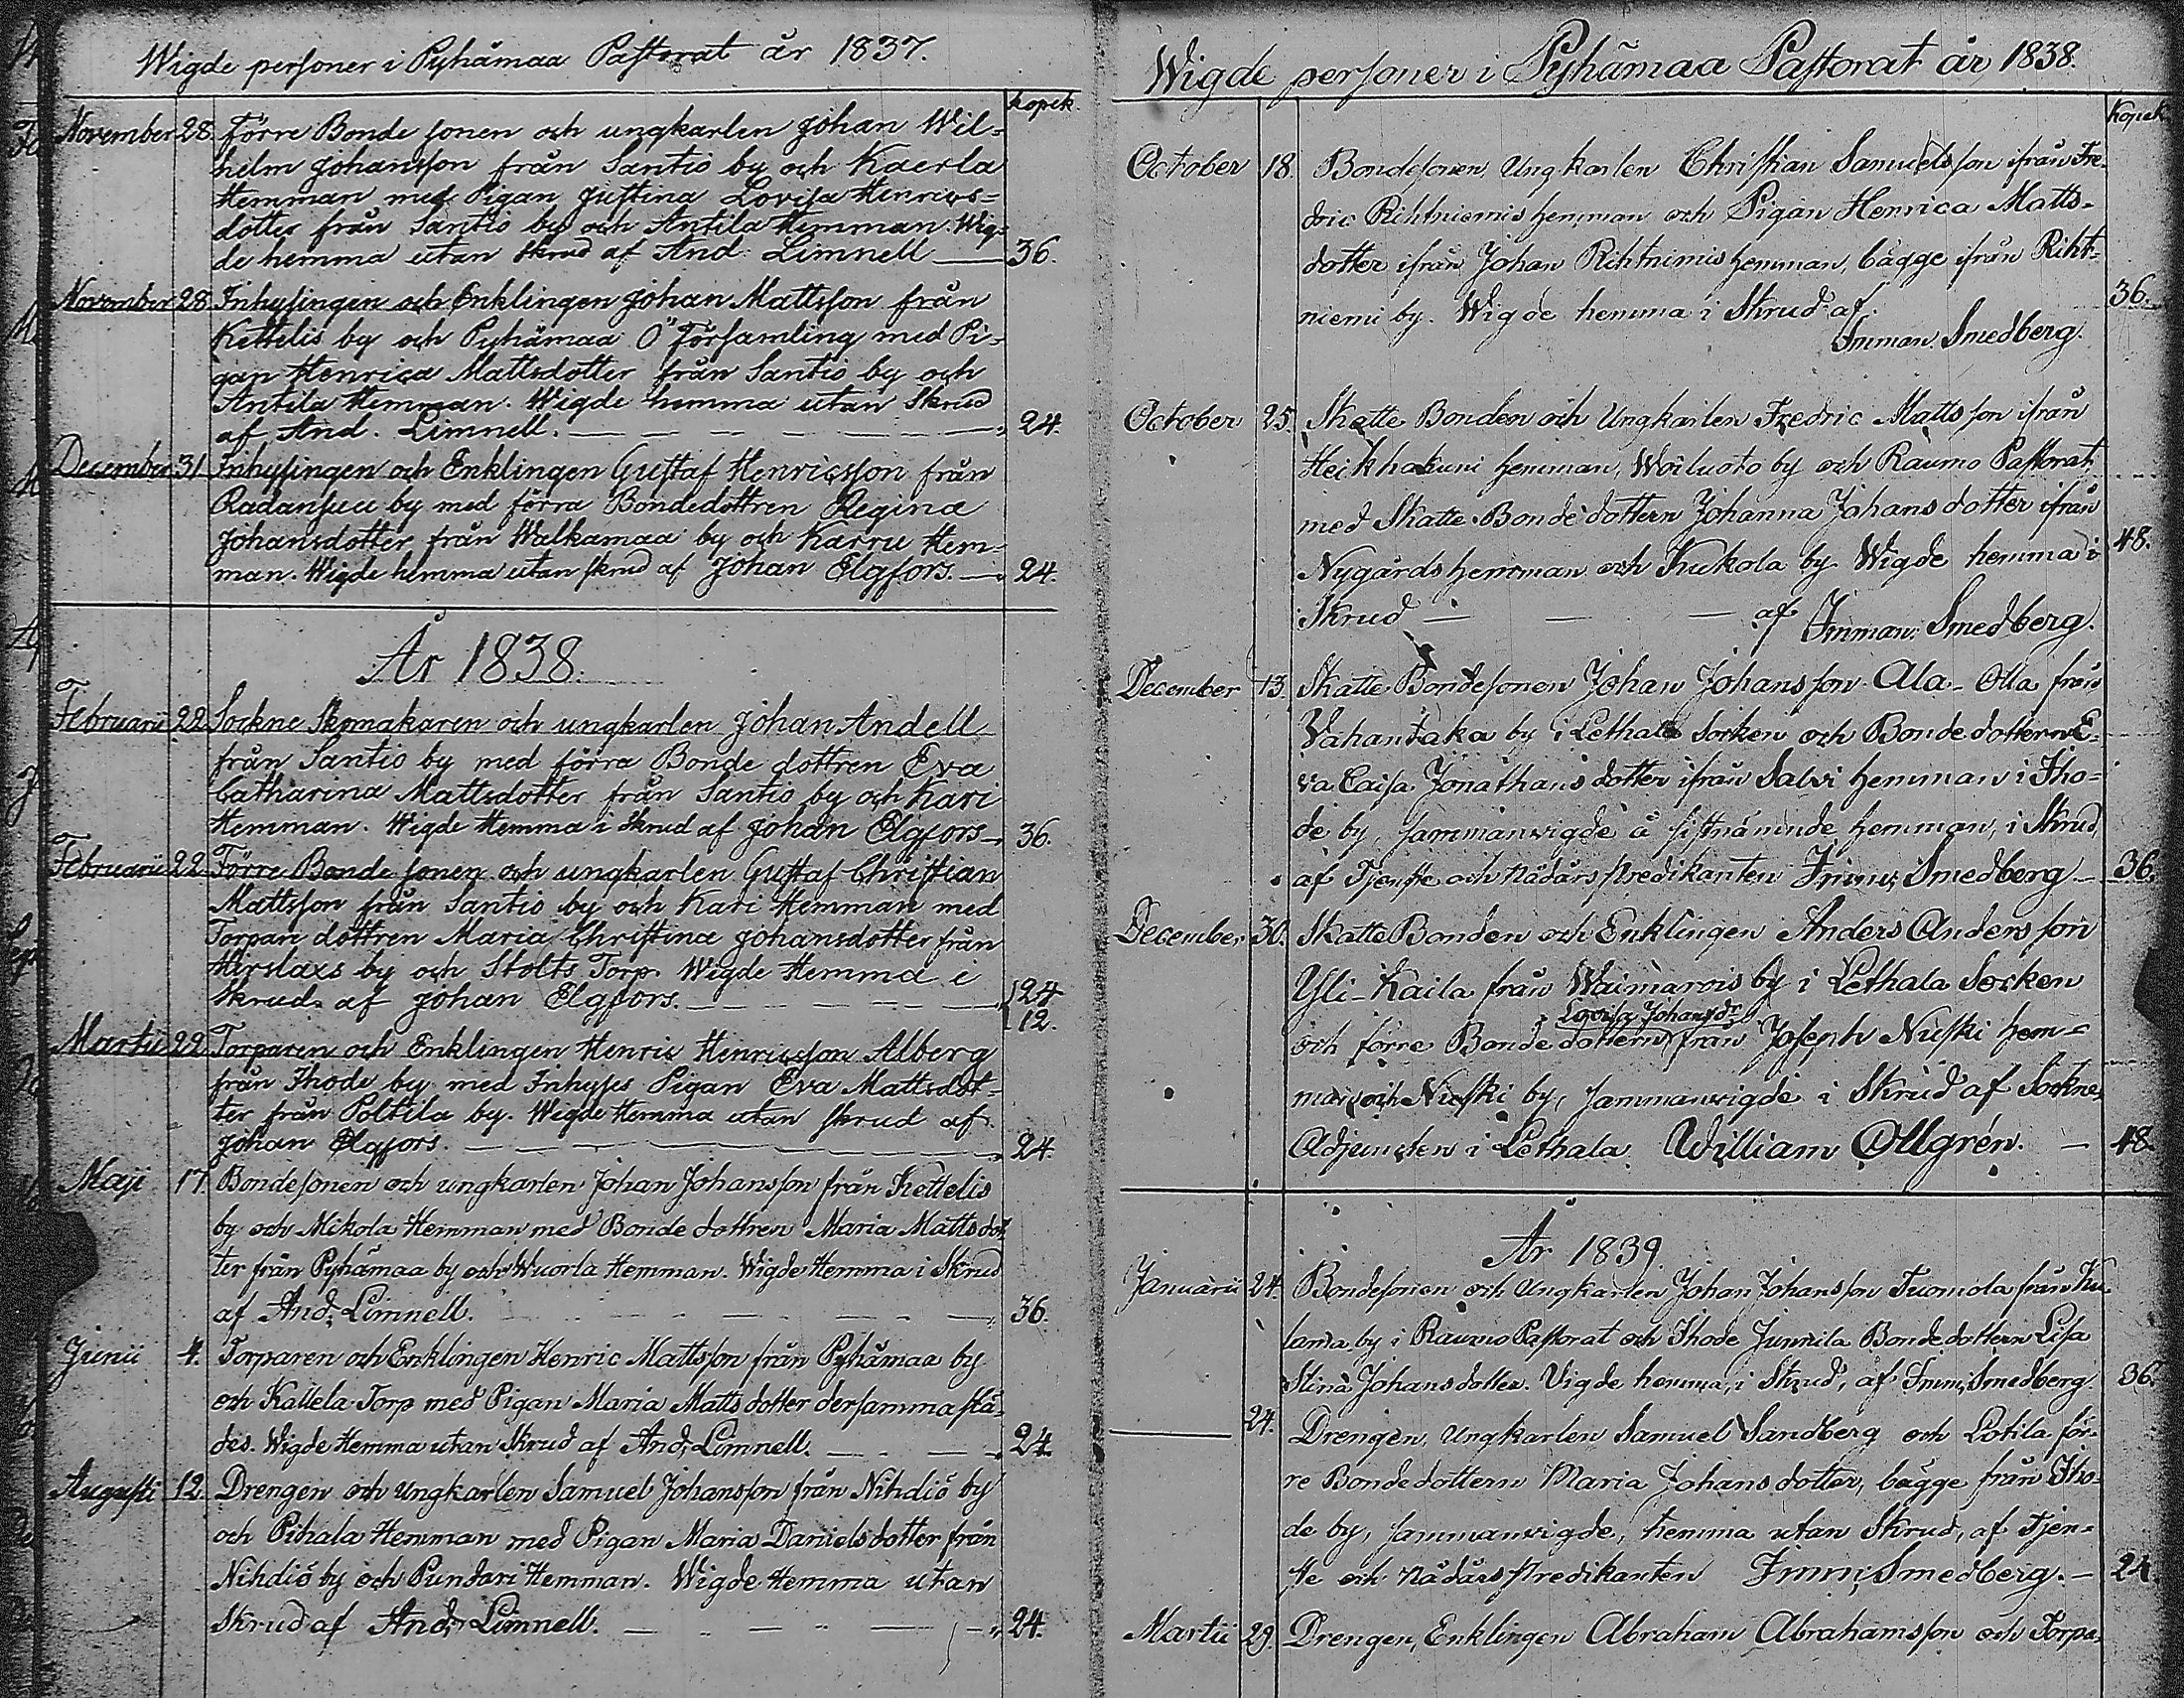 Wigde personer i Pyhämaa Pastorat år 1837.
kopek.
November 28. Förre Bonde sonen och ungkarlen Johan Wil-
helm Johansson från Santio by och Kaerla
Hemman med Pigan Justina Lovisa Henrics-
dotter från Santio by och Antila Hemman. Wig-
de hemma utan Skrud af And. Limnell 36.
November 28 Inhysingen och Enklingen Johan Mattsson från
Kettelis by och Pyhämaa Ö Församling med Pi-
gan Henrica Mattsdotter från Santio by och
Antila Hemman. Wigde hemma utan Skrud
af And. Limnell. 24.
December 31 Inhysingen och Enklingen Gustaf Henricsson från
Radansuu by med förra Bondedottren Regina
Johansdotter från Walkamaa by och Karru Hem-
man. Wigde hemma utan skrud af Johan Elgfors. 24.
År 1838.
Februarii 22 Sockne Skomakaren och ungkarlen Johan Andell
från Santio by med förra Bonde dottren Eva
Catharina Mattsdotter från Santio by och Kari
Hemman. Wigde Hemma i Skrud af Johan Elgfors 36.
Februarii 22 Förre Bonde sonen och ungkarlen Gustaf Christian
Mattsson från Santio by och Kari Hemman med
Torpare dottren Maria Christina Johansdotter från
Hirslaxs by och Stolts Torp. Wigde Hemma i
Skrud af Johan Elgfors. 24
12.
Martii 22 Torparen och Enklingen Henric Henricsson Alberg
från Ihode by med Inhyses Pigan Eva Mattsdot-
ter från Polttila by. Wigde Hemma utan skrud af
Johan Elgfors. 24.
Maji 17 Bondesonen och ungkarlen Johan Johansson från Kettelis
by och Mikola Hemman med Bonde dottren Maria Mattsdot
ter från Pyhämaa by och Wuorla Hemman. Wigde Hemma i Skrud
af And. Limnell. 36.
Junii 4. Torparen och Enklingen Henric Mattsson från Pyhämaa by
och Kallela Torp med Pigan Maria Matts dotter dersammastä-
des. Wigde Hemma utan Skrud af And. Limnell. 24.
Augusti 12 Drengen och Ungkarlen Samuel Johansson från Nihdiö by
och Pihala Hemman med Pigan Maria Daniels dotter från
Nihdiö by och Pundari Hemman. Wigde Hemma utan
Skrud af And. Limnell. 24.
Wigde personer i Pyhämaa Pastorat år 1838.
Kopek
October 18. Bondesonen Ungkarlen Christian Samuelsson ifrån Fre-
dric Rihtniemis hemman och Pigan Henrica Matts-
dotter ifrån Johan Rihtnimis hemman, bägge ifrån Riht-
niemi by. Wigde hemma i Skrud af 36.
Imman. Smedberg.
October 25. Skatte Bonden och Ungkarlen Fredric Mattsson ifrån
hemman, Woiluoto by och Raumo Pastorat
med Skatte Bonde dottern Johanna Johans dotter ifrån
Nygårds hemman och Kukola by Wigde hemma i 48.
Skrud af Imman. Smedberg.
December 13. Skatte Bondesonen Johan Johansson Ala-Olla från
Vahantaka by i Lethala Socken och Bonde dottern E-
va Caisa Jonathans dotter ifrån Salvi hemman i Iho-
de by, sammanvigde å sistnämnde hemman, i Skrud,
af Tjenste och Nådårs Predikanten Imm. Smedberg 36.
December 30. Skatte Bonden och Enklingen Anders Andersson
Yli-Kaila från Waimarois by i Lethala Socken
Lovisa Johansdr
och förre Bonde dottern från Joseph Nuski hem-
man och Nuski by, sammanvigde i Skrud af Sockne
Adjuncten i Lethala William Ollgrén. 48.
År 1839.
Januarii 24. Bondesonen och Ungkarlen Johan Johansson Tuomola från Ku-
lama by i Raumo Pastorat och Ihode Junnila Bonde dottern Lisa
Stina Johansdotter. Vigde hemma, i Skrud, af Imm. Smedberg. 36.
24. Drengen, Ungkarlen Samuel Sandberg och Lotila för-
re Bonde dottern Maria Johans dotter, bägge från Iho-
de by, sammanvigde, hemma utan Skrud, af Tjen-
ste och Nådårs Predikanten Imm. Smedberg. 24
Martii 29. Drengen, Enklingen Abraham Abrahamsson och Torpa-